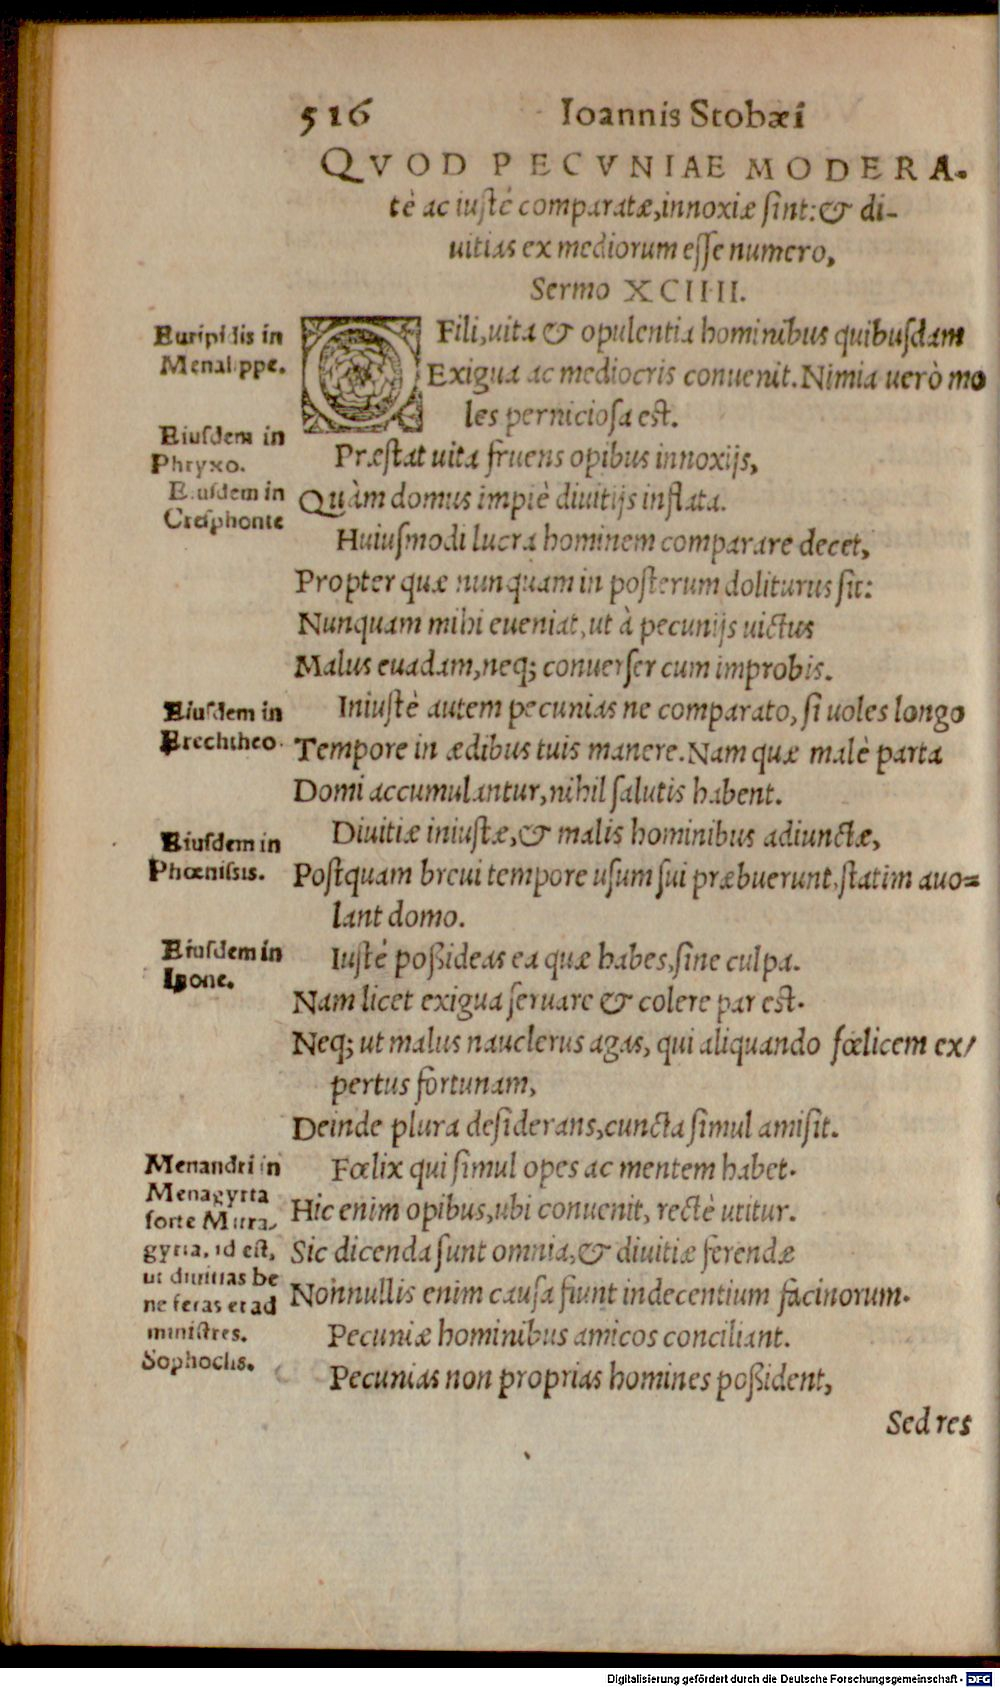 516 Ioannis Stobæi
QVOD PECVNIAE MODERA-
tè ac iustè comparatæ, innoxiæ sint: & di-
uitias ex mediorum esse numero,
Sermo XCIIII.
Euripidis in
Menalippe.
O Fili, uita & opulentia hominibus quibusdam
Exigua ac mediocris conuenit. Nimia uerò mo
les perniciosa est.
Eiusdem in
Phryxo.
Præstat uita fruens opibus innoxijs,
Quàm domus impiè diuitijs inflata.
Eiusdem in
Cresphonte
Huiusmodi lucra hominem comparare decet,
Propter quæ nunquam in posterum doliturus sit:
Nunquam mihi eueniat, ut à pecunijs uictus
Malus euadam, neq; conuerser cum improbis.
Eiusdem in
Erechtheo.
Iniustè autem pecunias ne comparato, si uoles longo
Tempore in ædibus tuis manere. Nam quæ malè parta
Domi accumulantur, nihil salutis habent.
Eiusdem in
Phœnissis.
Diuitiæ iniustæ, & malis hominibus adiunctæ,
Postquam breui tempore usum sui præbuerunt, statim auo=
lant domo.
Eiusdem in
Ione.
Iustè poßideas ea quæ habes, sine culpa.
Nam licet exigua seruare & colere par est.
Neq; ut malus nauclerus agas, qui aliquando fœlicem ex/
pertus fortunam,
Deinde plura desiderans, cuncta simul amisit.
Menandri in
Menagyrta
forte Mitra-
gyrta, id est,
ut diuitias be
ne feras et ad
ministres.
Fœlix qui simul opes ac mentem habet.
Hic enim opibus, ubi conuenit, rectè utitur.
Sic dicenda sunt omnia, & diuitiæ ferendæ
Nonnullis enim causa fiunt indecentium facinorum.
Sophoclis.
Pecuniæ hominibus amicos conciliant.
Pecunias non proprias homines poßident,
Sed res
Digitalisierung gefördert durch die Deutsche Forschungsgemeinschaft - DFG